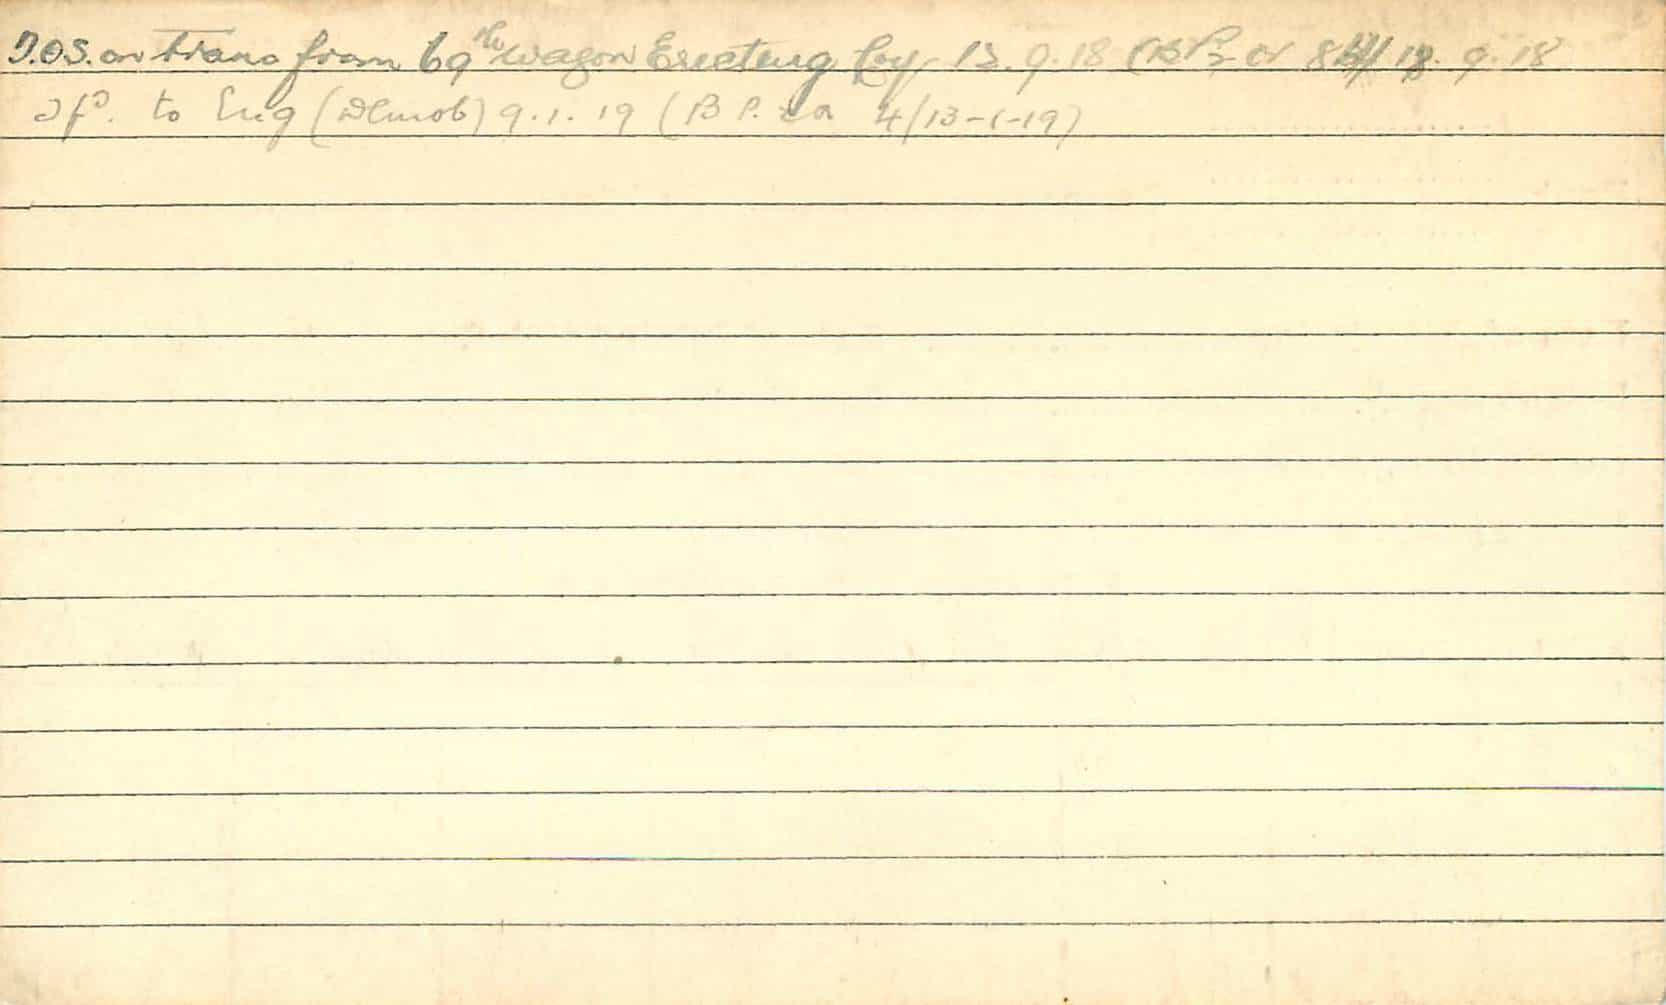 T.O.S. on trans from 69th Wagon Erecting Coy 13.9.18 (B.P. 2 or 18.9.18
Tfd. to Eng (Demob) 9.1.19 (B P. 2 or 4/13-1-19)